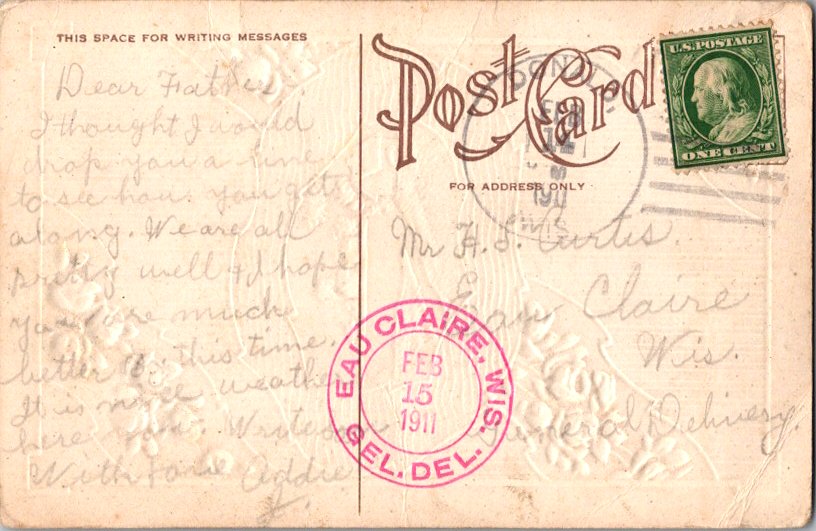 THIS SPACE FOR WRITING MESSAGES
Dear Father
I thought I would
drop you a line
to see how you get
along. We are all
pretty well & I hope
you are much
better by this time.
It is nice weather
here now. Write soon
With Love Addie
Post Card
FOR ADDRESS ONLY
U.S. POSTAGE
ONE CENT
FEB
191
WIS
Mr H. S. Curtis.
Eau Claire
Wis.
General Delivery.
EAU CLAIRE, WIS.
FEB
15
1911
GEL. DEL.